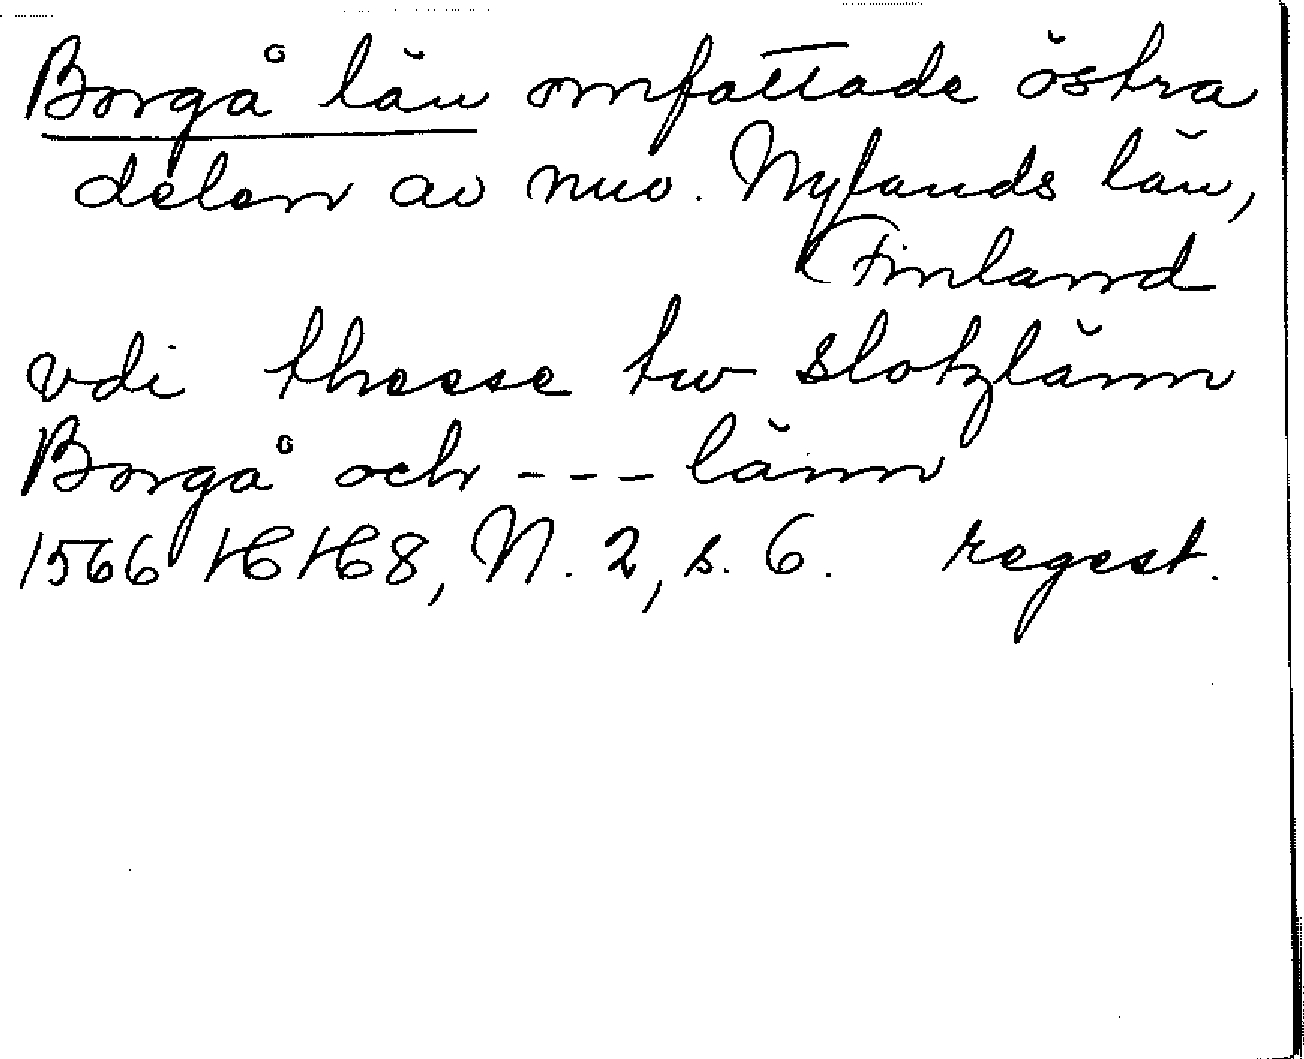 Borgå län omfattade östra
delen av nuv. Nylands län,
Finland
vdi thesse tw slotzlänn
Borgå och --- länn
1566 HH8, N. 2, s. 6. regest.